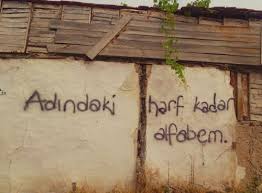 Adındaki harf kadar
alfabem.